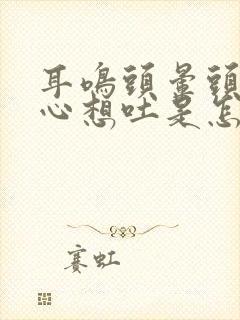 耳鳴頭暈頭
心想吐是怎
賽虹